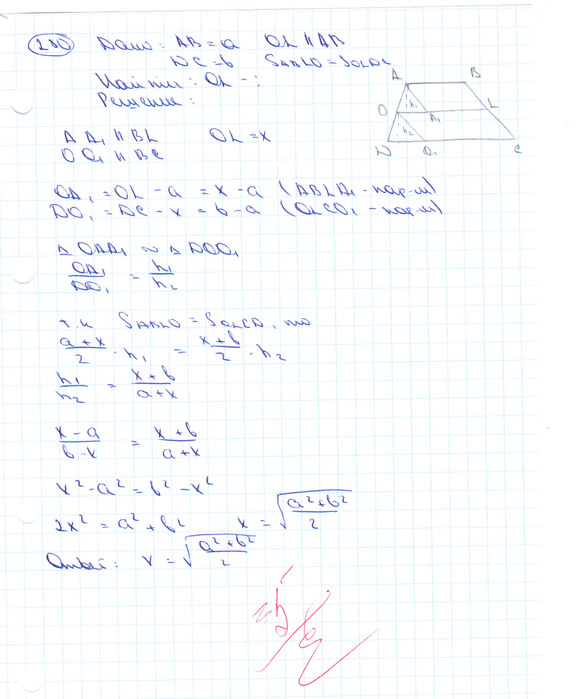 200 Дано: AB = a OL || AB
DC = b SABLO = SOLDC
Найти: OL - ?
Решение:
A B O h₁ A₁ L h₂ D O₁ C
AA₁ || BL OL = x
OO₁ || BC
OA₁ = OL - a = x - a (ABLA₁ - пар-м)
DO₁ = DC - x = b - a (OLCO₁ - пар-м)
△ OAA₁ ~ △ DOO₁
OA₁/DO₁ = h₁/h₂
т.к SABLO = SOLCD, то
(a + x)/2 · h₁ = (x + b)/2 · h₂
h₁/h₂ = (x + b)/(a + x)
(x - a)/(b - x) = (x + b)/(a + x)
x² - a² = b² - x²
2x² = a² + b² x = √((a² + b²)/2)
Ответ: x = √((a² + b²)/2)